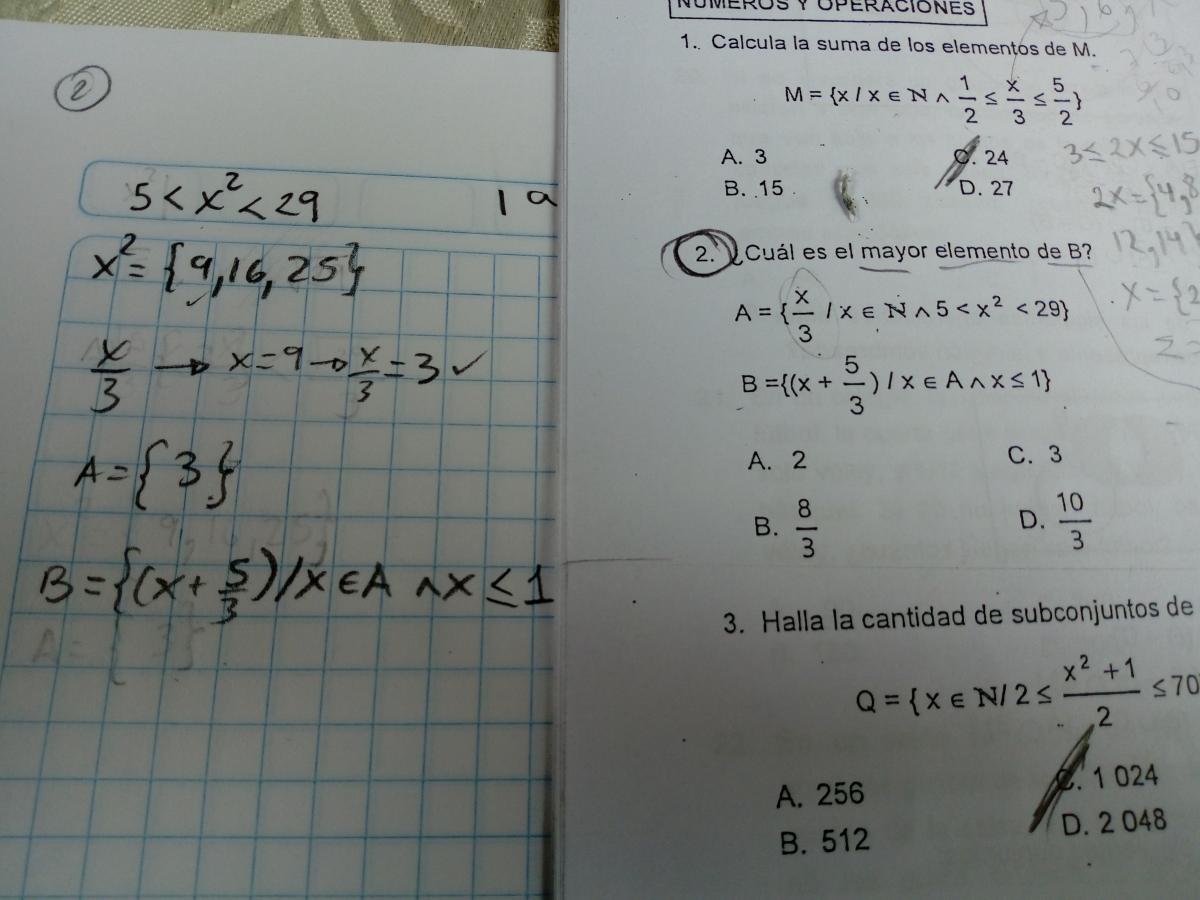 2
5 < x² < 29
1 a
x² = {9, 16, 25}
x/3 → x = 9 → x/3 = 3 ✓
A = {3}
B = {(x + 5/3) / x ∈ A ∧ x ≤ 1
NÚMEROS Y OPERACIONES
1. Calcula la suma de los elementos de M.
M = {x / x ∈ N ∧ 1/2 ≤ x/3 ≤ 5/2}
A. 3
C. 24
B. 15
D. 27
3 ≤ 2x ≤ 15
2x = {4, 8
12, 14
x = {2
Σ =
2. ¿Cuál es el mayor elemento de B?
A = {x/3 / x ∈ N ∧ 5 < x² < 29}
B = {(x + 5/3) / x ∈ A ∧ x ≤ 1}
A. 2
C. 3
B. 8/3
D. 10/3
3. Halla la cantidad de subconjuntos de
Q = { x ∈ N / 2 ≤ x² + 1/2 ≤ 70
A. 256
C. 1 024
B. 512
D. 2 048